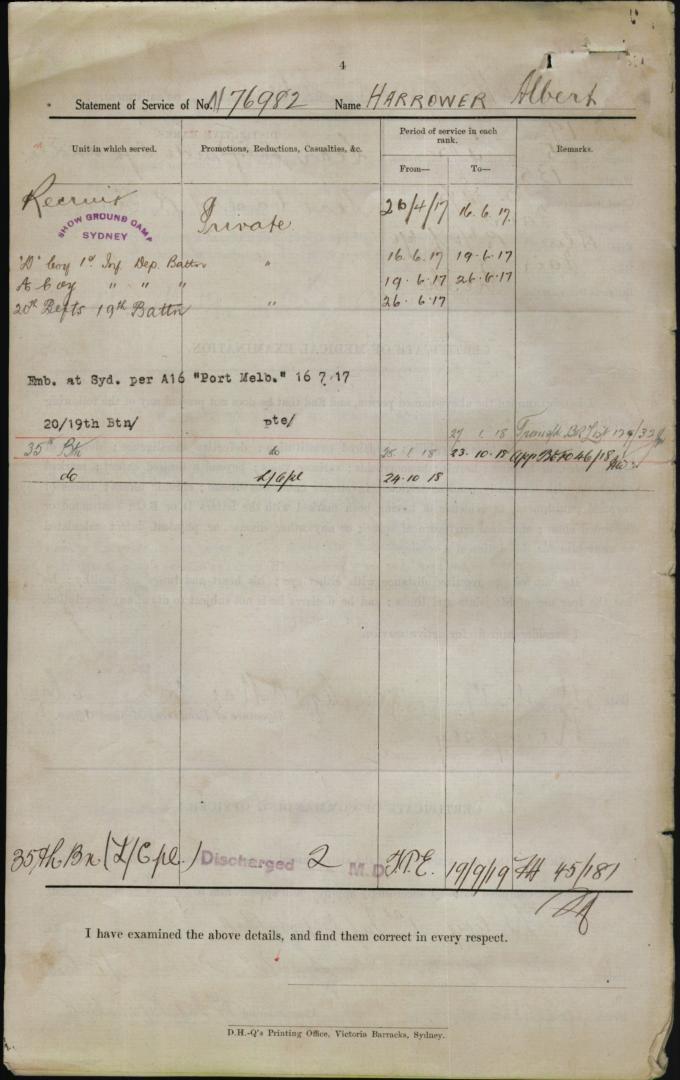 4
Statement of Service of No. N76982 Name HARROWER Albert
Unit in which served. Promotions, Reductions, Casualties, &c. Period of service in each rank. From— To— Remarks.
Recruit Private 26/4/17 16.6.17
SHOW GROUND CAMP SYDNEY
"D" Coy 1st Inf. Dep. Battn " 16.6.17 19.6.17
A Coy " " " 19.6.17 26.6.17
20th Refts 19th Battn " 26.6.17
Emb. at Syd. per A16 "Port Melb." 16 7.17
20/19th Btn/ pte/ 27 1 18
35th Btn do 28 1 18 23.10.18
do L/Cpl 24.10 18
35th Bn (L/Cpl.) Discharged 2 M.D. T.P.E. 19/9/19 45/181
I have examined the above details, and find them correct in every respect.
D.H.-Q's Printing Office, Victoria Barracks, Sydney.